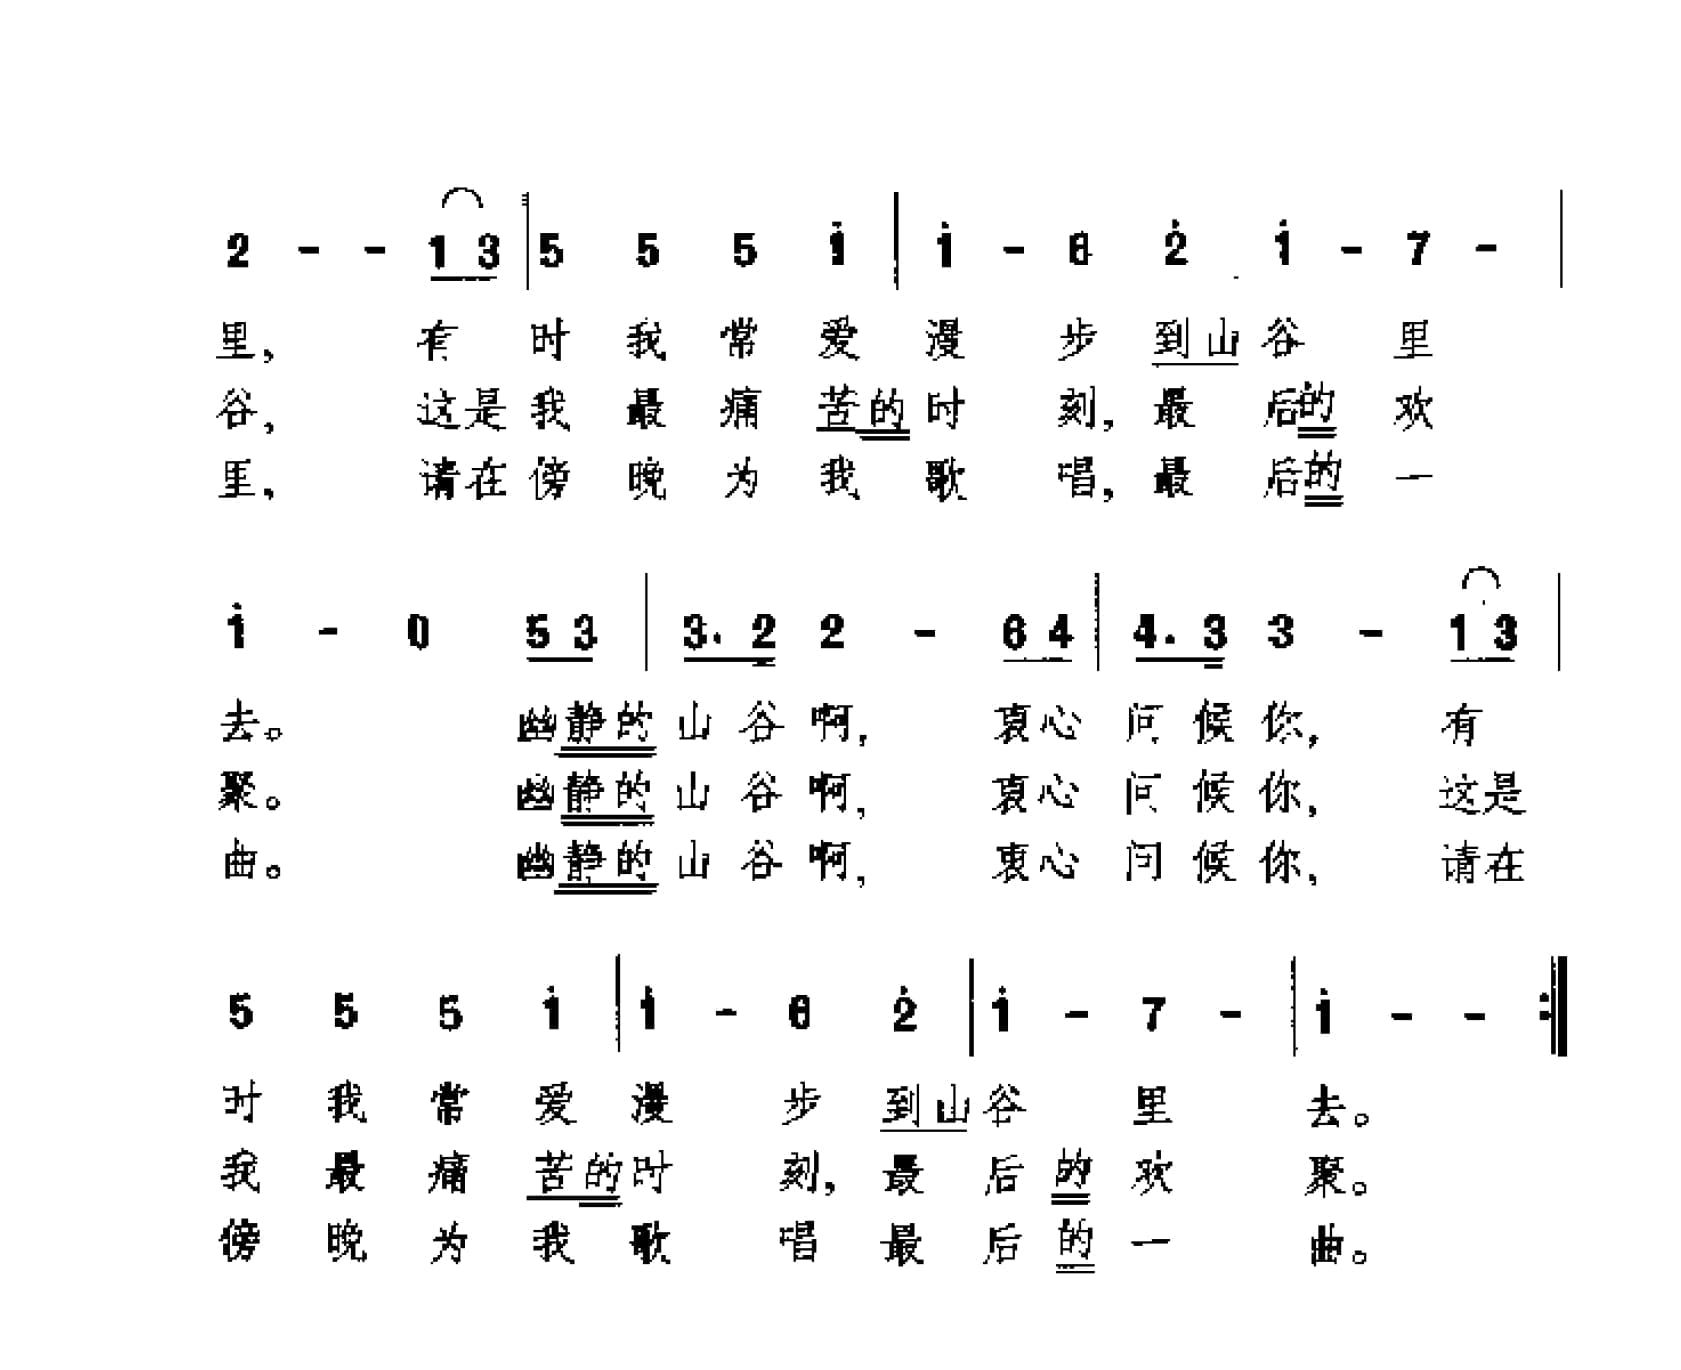 2 - - 1 3 | 5 5 5 i | i - 6 2̇ i - 7 - |
里， 有 时 我 常 爱 漫 步 到山谷 里
谷， 这是 我 最 痛 苦的 时 刻， 最 后的 欢
里， 请在 傍 晚 为 我 歌 唱， 最 后的 一
i - 0 5 3 | 3. 2 2 - 6 4 | 4. 3 3 - 1 3 |
去。 幽静的 山 谷 啊， 衷心 问 候 你， 有
聚。 幽静的 山 谷 啊， 衷心 问 候 你， 这是
曲。 幽静的 山 谷 啊， 衷心 问 候 你， 请在
5 5 5 i | i - 6 2̇ | i - 7 - | i - - :|
时 我 常 爱 漫 步 到山谷 里 去。
我 最 痛 苦的 时 刻， 最 后的 欢 聚。
傍 晚 为 我 歌 唱 最 后的 一 曲。